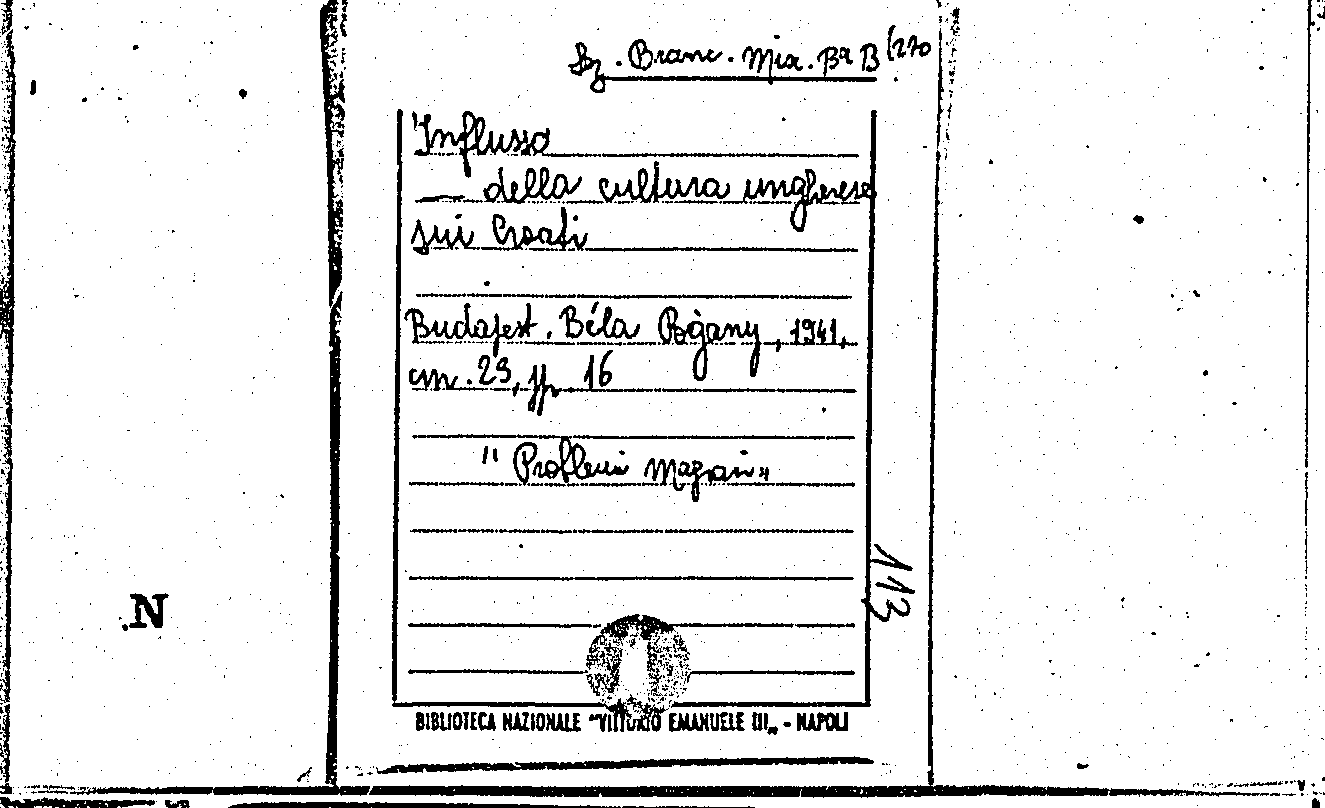 Sez. Branc. Misc. Bª B (270
Influsso
— della cultura ungherese
sui Croati
Budapest. Béla Pogány, 1941,
cm. 23, pp. 16
"Problemi Magiari"
113
N
BIBLIOTECA NAZIONALE "VITTORIO EMANUELE III„ - NAPOLI